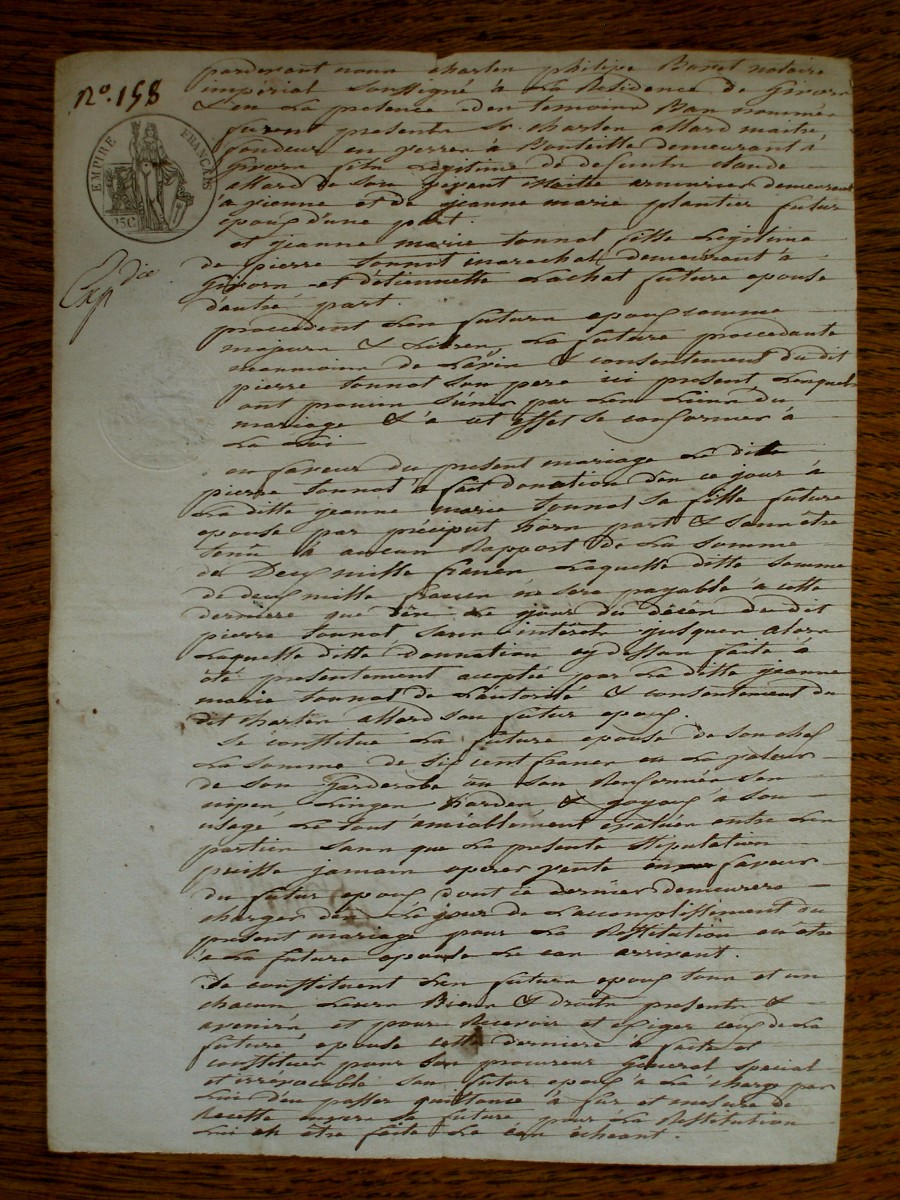 No. 158
EMPIRE FRANÇAIS
25 C
Exp dice
pardevant nous charles philipe Banet notaire
impérial soussigné à La Résidence de Givors
& en La présence des temoins Bas nommés
furent présents Sr. charles allard maitre
fondeur en verre à Bouteille demeurant à
Givors fils Légitime de defunts claude
allard de son vivant Maitre armurier demeurant
à vienne et de jeanne marie plantier futur
époux d'une part.
et jeanne marie tonnot fille Légitime
de pierre tonnot marechal demeurant à
Givors et d'étiennette Lachat future epouse
d'autre part.
procedent Les futurs epoux comme
majeurs & Libres, La future procedante
neanmoins de L'avis & consentement du dit
pierre tonnot son pere ici present, Lesquels
ont promis S'unir par Les Liens du
mariage & à cet effet se conformer à
La Loi
en faveur du present mariage Le dit
pierre tonnot à fait donation dès ce jour à
La ditte jeanne marie tonnot sa fille future
epouse par préciput hors part & sans être
tenue à aucun Rapport de La somme
de Deux mille francs Laquelle ditte somme
de deux mille francs ne sera payable à cette
derniere que dès Le jour du décès du dit
pierre tonnot sans intérêts jusques alors
Laquelle ditte donnation cy dessus faite à
été presentement acceptée par La ditte jeanne
marie tonnot de L'autorité & consentement du
dit charles allard son futur epoux.
Se constitue La future epouse de son chef
La somme de six cent francs en La valeur
de son Garderobe en son Renfermés ses
nipes Linges hardes, & joyaux à son
usage, Le tout amiablement évalués entre Les
parties sans que La presente stipulation
puisse jamais operer vente en faveur
du futur epoux dont ce dernier demeurera
charger dès Le jour de L'accomplissement du
present mariage pour La Restitution en être
à La future epouse Le cas arrivant.
Se constituent Les futurs epoux tous et un
chacun Leurs Biens & droits presents &
avenirs et pour Recevoir et exiger ceux de La
future epouse cette derniere à faite et
constituer pour son procureur Général special
et irrevocable son futur epoux à La charge par
Lui d'en passer quittance à fur et mesure de
Recette envers La future pour La Restitution
Lui en être faite Le cas échéant.